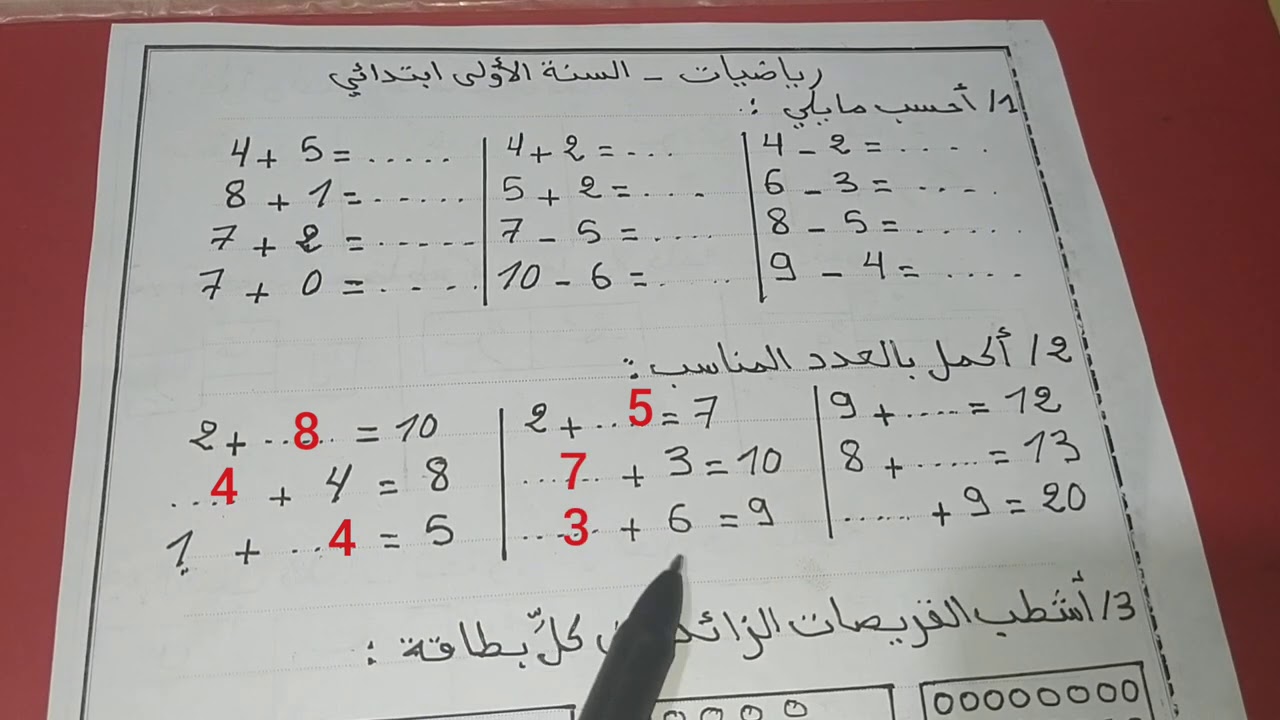 رياضيات - السنة الأولى ابتدائي
1/ أحسب مايلي :
4 + 5 = ..... | 4 + 2 = ... | 4 - 2 = .....
8 + 1 = ...... | 5 + 2 = .... | 6 - 3 = .....
7 + 2 = ...... | 7 - 5 = ..... | 8 - 5 = ......
7 + 0 = ..... | 10 - 6 = ..... | 9 - 4 = .....
2/ أكمل بالعدد المناسب :
2 + ..8.. = 10 | 2 + ..5 = 7 | 9 + ..... = 12
...4 + 4 = 8 | ..7.. + 3 = 10 | 8 + ..... = 13
1 + ..4 = 5 | ..3.. + 6 = 9 | ...... + 9 = 20
3/ أشطب القريصات كلّ بطاقة :